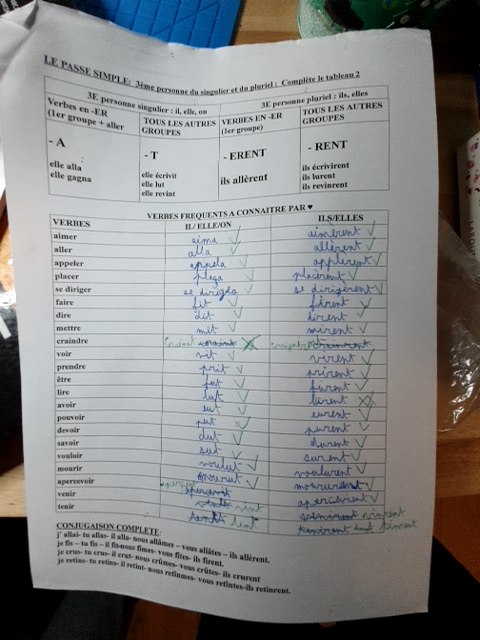 LE PASSE SIMPLE: 3ème personne du singulier et du pluriel : Complète le tableau 2
3E personne singulier : il, elle, on 3E personne pluriel : ils, elles
Verbes en -ER (1er groupe + aller TOUS LES AUTRES GROUPES VERBES EN -ER (1er groupe) TOUS LES AUTRES GROUPES
- A - T - ERENT - RENT
elle alla elle écrivit ils allèrent ils écrivirent
elle gagna elle lut ils lurent
elle revint ils revinrent
VERBES FREQUENTS A CONNAITRE PAR ♥
VERBES IL/ ELLE/ON ILS/ELLES
aimer aima aimèrent
aller alla allèrent
appeler appela
placer plaça placèrent
se diriger se dirigea se dirigèrent
faire fit firent
dire dit dirent
mettre mit mirent
craindre
voir vit virent
prendre prit prirent
être fut furent
lire lut lurent
avoir eut eurent
pouvoir put purent
devoir dut durent
savoir sut surent
vouloir voulut voulurent
mourir mourut moururent
apercevoir
venir vint vinrent
tenir tint tinrent
CONJUGAISON COMPLETE :
j' allai- tu allas- il alla- nous allâmes – vous allâtes – ils allèrent.
je fis – tu fis – il fit-nous fîmes- vous fîtes- ils firent.
je crus- tu crus- il crut- nous crûmes- vous crûtes- ils crurent
je retins- tu retins- il retint- nous retînmes- vous retîntes-ils retinrent.